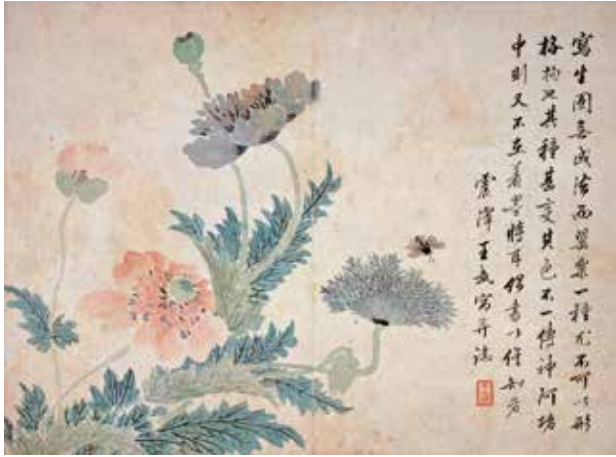 寫生固無成法而罌粟一種尤不可以形
格拘也其種甚變其色不一傳神阿堵
中則又不在着筆時耳偶書以俟知者
震澤王武寫并識